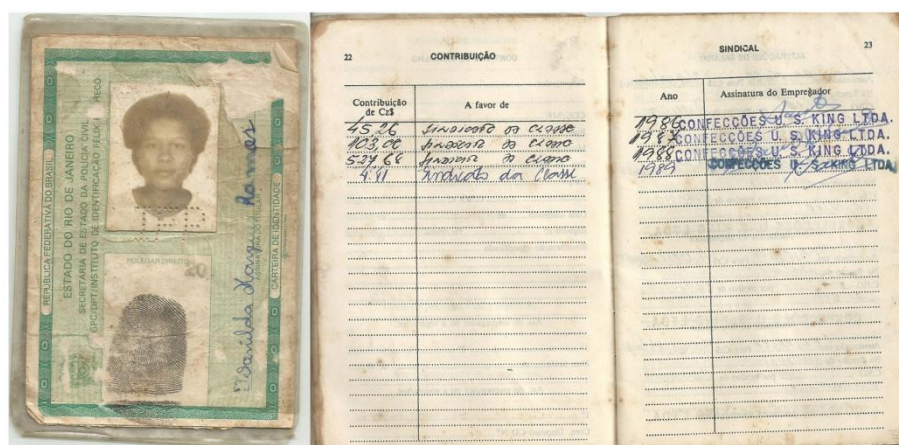 REPÚBLICA FEDERATIVA DO BRASIL
ESTADO DO RIO DE JANEIRO
SECRETARIA DE ESTADO DA POLÍCIA CIVIL
GPC/DPT/INSTITUTO DE IDENTIFICAÇÃO FÉLIX
POLEGAR DIREITO
Ramos
CARTEIRA DE IDENTIDADE
22 CONTRIBUIÇÃO
Contribuição de Cz$ A favor de
45,26 Sindicato da classe
103,00 Sindicato da classe
527,68 Sindicato da classe
4,11 Sindicato da Classe
SINDICAL 23
Ano Assinatura do Empregador
1986 CONFECCÕES U. S. KING LTDA.
1987 CONFECCÕES U. S. KING LTDA.
1988 CONFECCÕES U. S. KING LTDA.
1989 CONFECCÕES U. S. KING LTDA.